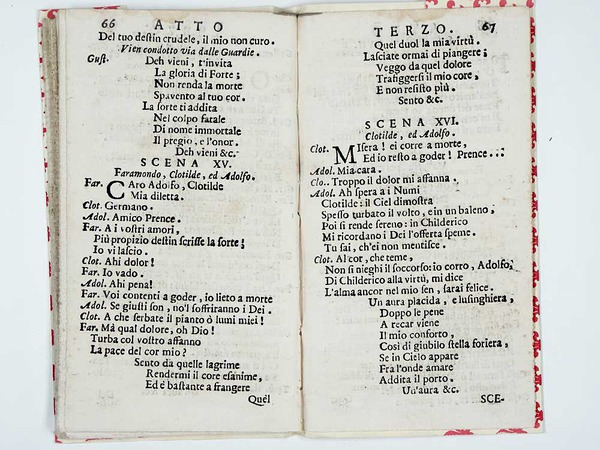 66 ATTO
Del tuo destin crudele, il mio non curo.
Vien condotto via dalle Guardie.
Gust. Deh vieni, t'invita
La gloria di Forte;
Non renda la morte
Spavento al tuo cor.
La forte ti addita
Nel colpo fatale
Di nome immortale
Il pregio, e l'onor.
Deh vieni &c.
SCENA XV.
Faramondo, Clotilde, ed Adolfo.
Far. CAro Adolfo, Clotilde
Mia diletta.
Clot. Germano.
Adol. Amico Prence.
Far. A i vostri amori,
Più propizio destin scrisse la sorte;
Io vi lascio.
Clot. Ahi dolor!
Far. Io vado.
Adol. Ahi pena!
Far. Voi contenti a goder, io lieto a morte
Adol. Se giusti son, no'l soffriranno i Dei.
Clot. A che serbate il pianto ò lumi miei!
Far. Mà qual dolore, oh Dio!
Turba col vostro affanno
La pace del cor mio?
Sento da quelle lagrime
Rendermi il core esanime,
Ed è bastante a frangere
Quel
TERZO. 67
Quel duol la mia virtù.
Lasciate ormai di piangere;
Veggo da quel dolore
Trafiggersi il mio core,
E non resisto più.
Sento &c.
SCENA XVI.
Clotilde, ed Adolfo.
Clot. MIsera! ei corre a morte,
Ed io resto a goder! Prence...
Adol. Mia cara.
Clo.. Troppo il dolor mi affanna.
Adol. Ah spera a i Numi
Clotilde: il Ciel dimostra
Spesso turbato il volto, e in un baleno,
Poi si rende sereno: in Childerico
Mi ricordano i Dei l'offerta speme.
Tu sai, ch'ei non mentisce.
Clot. Al cor, che teme,
Non si nieghi il soccorso: io corro, Adolfo;
Di Childerico alla virtù, mi dice
L'alma ancor nel mio sen, sarai felice.
Un aura placida, e lusinghiera,
Doppo le pene
A recar viene
Il mio conforto,
Così di giubilo stella foriera,
Se in Cielo appare
Fra l'onde amare
Addita il porto.
Un'aura &c.
SCE-